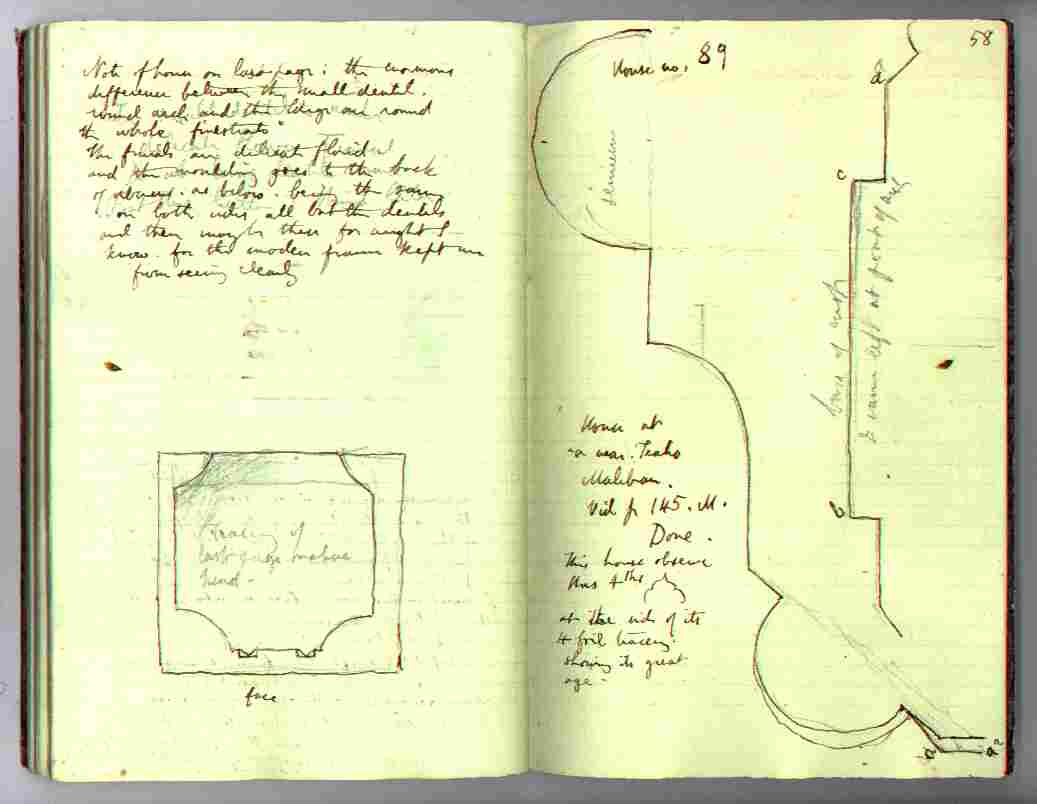 Note of house on last page: the enormous
difference between the small dentil.
round arch and the large one round
the whole finestrato"
The finials are delicate florid
and the moulding goes to the back
of abacus. as below. being the same
on both sides all but the dentils
and they may be there for aught I
know. for the wooden frame kept me
from seeing clearly
tracing of
last page
face.
58
House no. 89
d
c
base of cusp
left at point of
b
House at
near. Teatro
Malibran.
Vid p 145. M.
Done.
This house observe
has 4ths
at the side of its
4 foil tracery.
showing its great
age -
a
a